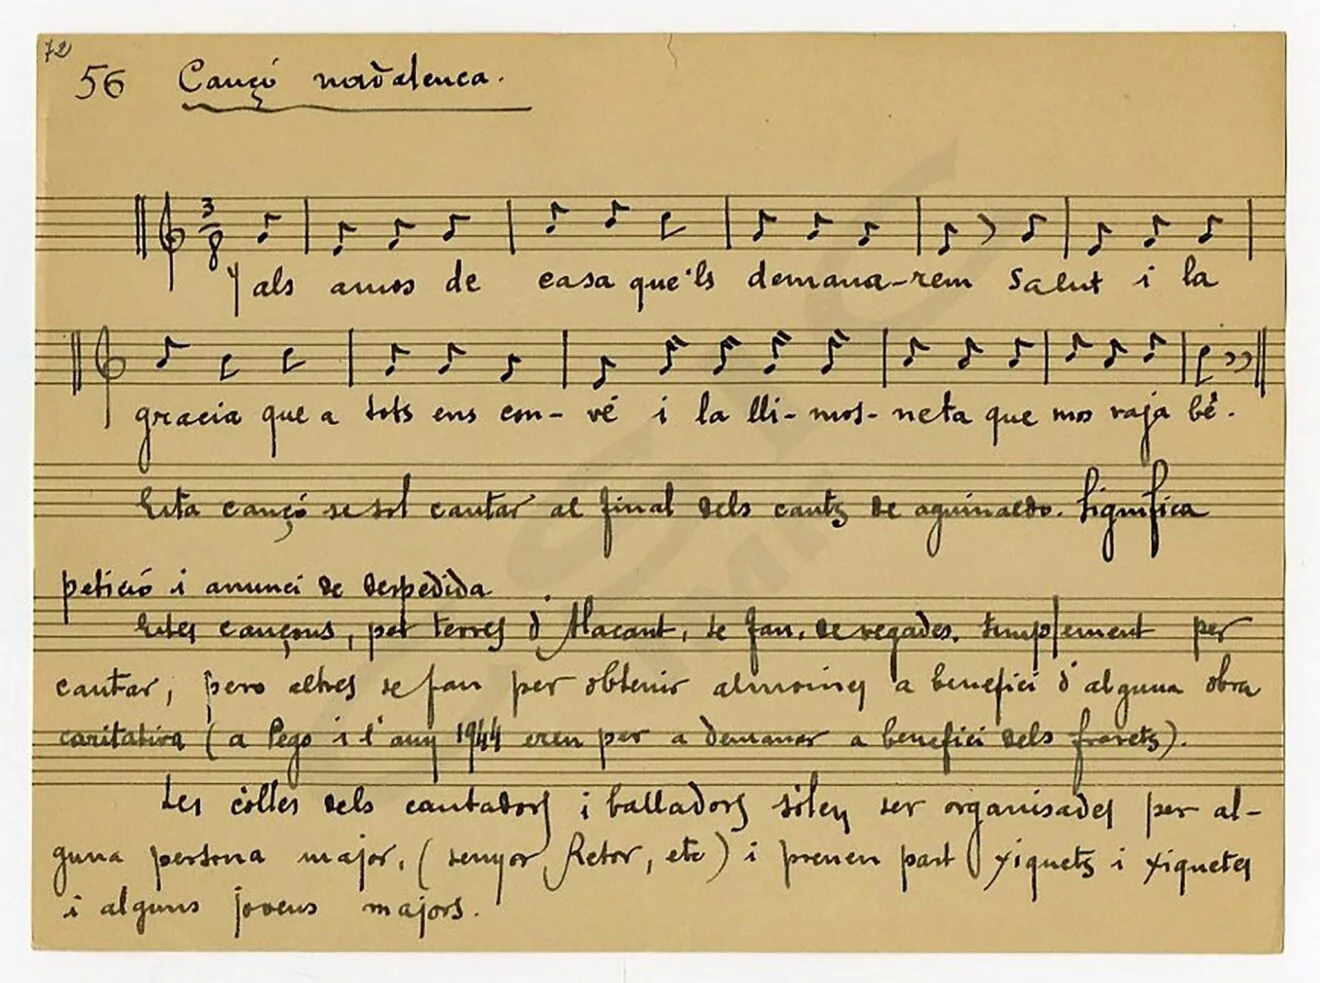 72
56 Cançó nadalenca.
3
8
Y als amos de casa que'ls demana-rem salut i la
gracia que a tots ens con-vé i la lli-mos-neta que mos vaja bé.
Esta cançó se sol cantar al final dels cants de aguinaldo. Significa
petició i anunci de despedida
Estes cançons, per terres d'Alacant, se fan, de vegades, simplement per
cantar, pero altres se fan per obtenir almoines a benefici d'alguna obra
caritativa (a Pego i l'any 1944 eren per a demanar a benefici dels
Les colles dels cantadors i balladors solen ser organisades per al-
guna persona major, (senyor Retor, etc) i prenen part xiquets i xiquetes
i alguns jovens majors.